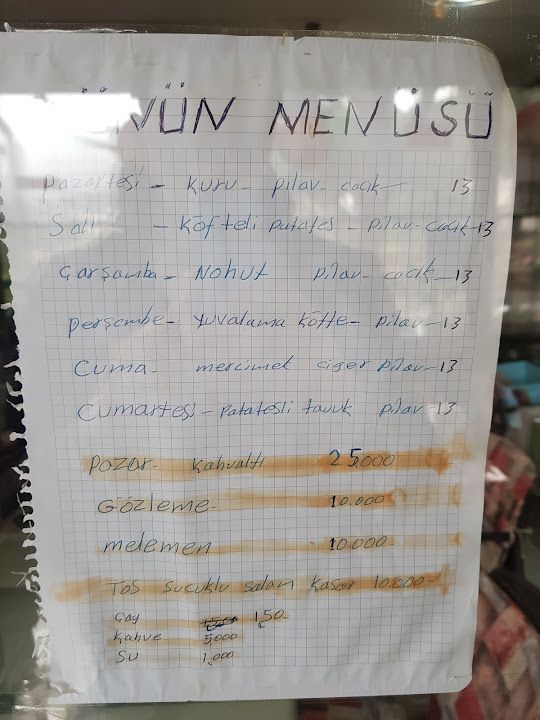 GÜNÜN MENÜSÜ
Pazartesi - Kuru - pilav - cacık - 13
Salı - Köfteli patates - pilav - cacık - 13
Çarşamba - Nohut pilav - cacık - 13
perşembe - yuvalama köfte - pilav - 13
Cuma - mercimek ciğer pilav - 13
Cumartesi - Patatesli tavuk pilav 13
Pazar - Kahvaltı 25.000
Gözleme - 10.000
melemen 10.000
Tos sucuklu salam kaşar 10.000
Çay 150
Kahve 5.000
Su 1.000